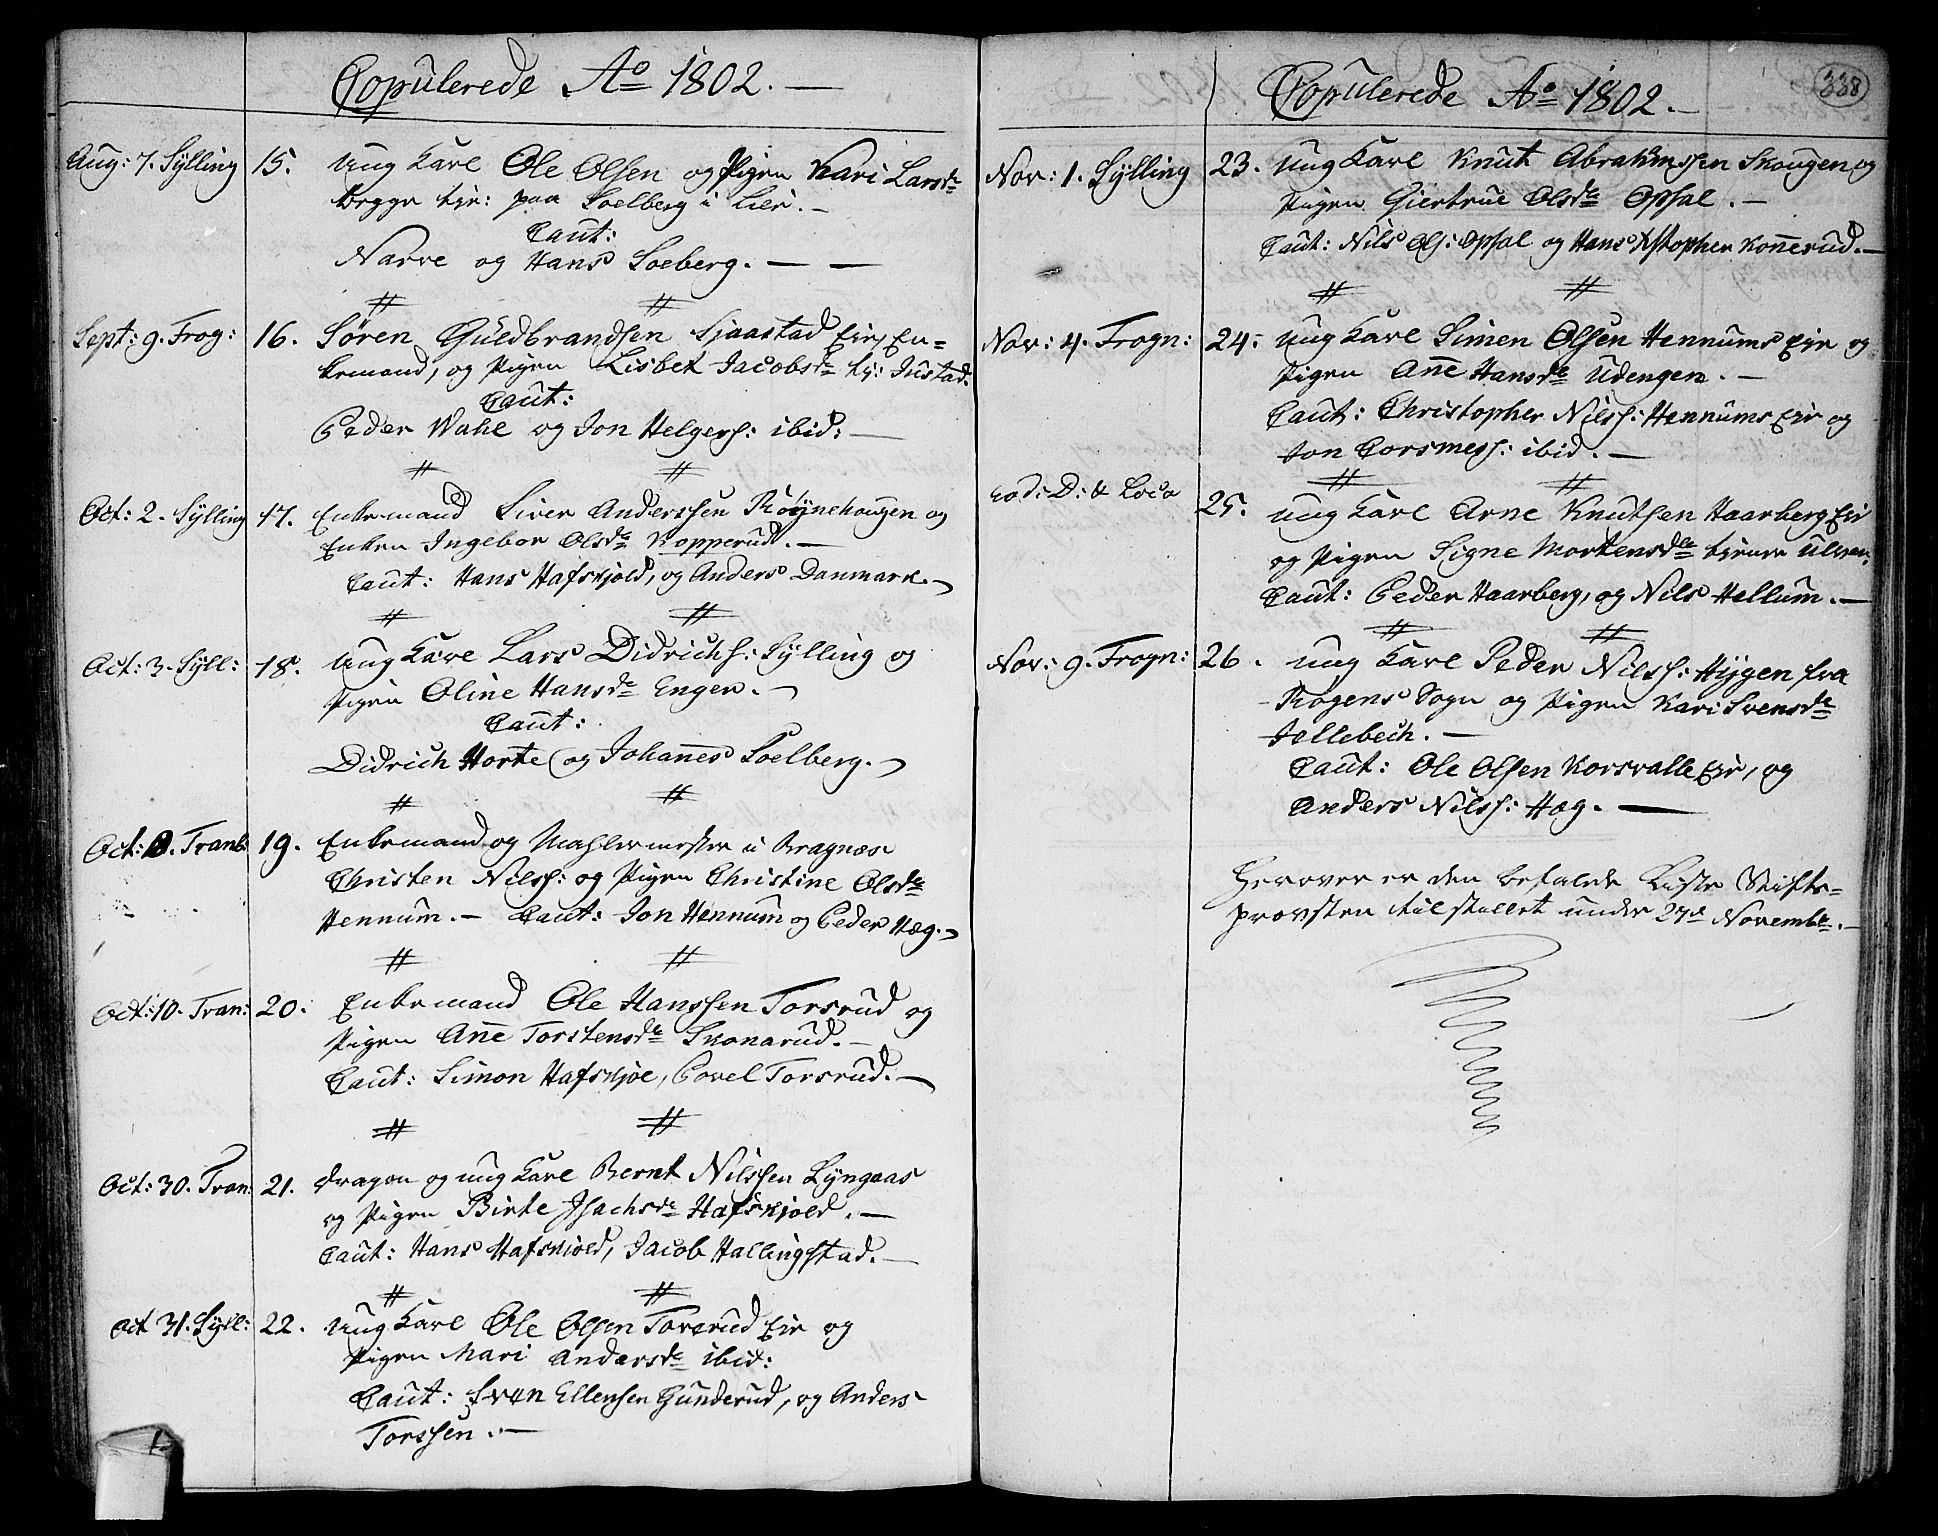 Copulerede Ao 1802. —
Aug: 7. Sylling 15. Ung Karl Ole Olsen og Pigen Kari Larsde
begge tje: paa Soelberg i Lier. —
Caut:
Narve og Hans Soeberg. — —
Sept: 9. Frog: 16. Søren Guldbrandsen Sjaastad Eje, En=
kemand, og Pigen Lisbet Jacobsde ty: Justad.
Caut:
Peder Wahl og Jon Helgers: ibid: —
Oct: 2. Sylling 17. Enkemand Siver Anderssen Røynehaugen og
Enken Ingebor Olsde Kopperud. —
Caut: Hans Hafskjold, og Anders Danmark. —
Oct: 3. Syll: 18. Ung Karl Lars Didrichs: Sylling og
Pigen Oline Hansde Enger. —
Caut:
Didrich Horte og Johannes Soelberg. —
Oct: 8. Tranb: 19. Enkemand og Mahlermester i Bragnæs
Christen Nilss: og Pigen Christine Olsde
Hennum. — Caut: Jon Hennum og Peder Høg. —
Oct: 10. Tran: 20. Enkemand Ole Hanssen Torsrud og
Pigen Anne Torstensde Skonarud. —
Caut: Simon Hafskjol, Povel Torsrud. —
Oct: 30. Tran: 21. Dragon og ung Karl Bernt Nilssen Lyngaas
og Pigen Birte Isachsde Hafskjold. —
Caut: Hans Hafskjold, Jacob Hallingstad. —
Oct 31. Syll: 22. Ung Karl Ole Olsen Toverud Eje og
Pigen Mari Andersde ibid:
Caut: Sven Ellensen Gunderud, og Anders
Torssen. —
338
Copulerede Ao 1802. —
Nov: 1. Sylling 23. Ung Karl Knut Abrahamssen Skougen og
Pigen Giertrue Olsde Opsal. —
Caut: Nils Ols: Opsal og Hans Xstopher Konnerud. —
Nov: 4. Frogn: 24. Ung Karl Simen Olsen Hennums Eje og
Pigen Anne Hansde Udengen. —
Caut: Christopher Nilss: Hennums Eje og
Jon Corsmess: ibid. —
eod: D: & Loco 25. Ung Karl Arne Knutsen Haarberg Eje
og Pigen Signe Mortensdtr tjener Ulven.
Caut: Peder Haarberg, og Nils Hellum. —
Nov: 9. Frogn: 26. Ung Karl Peder Nilss: Hygen fra
Røgens Sogn og Pigen Kari Svensde
Jellebech. —
Caut: Ole Olsen Korsvalle Eje, og
Anders Nilss: Høg. —
Herover er den befalede Liste Stifts=
provsten tilstillet under 27d Novembr. —